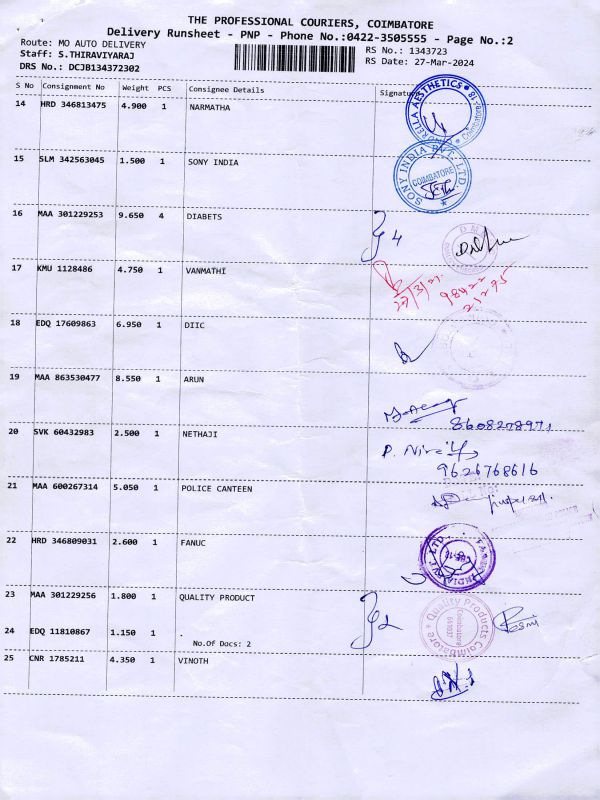 THE PROFESSIONAL COURIERS, COIMBATORE
Delivery Runsheet - PNP - Phone No.:0422-3505555 - Page No.:2
Route: MO AUTO DELIVERY
RS No.: 1343723
Staff: S.THIRAVIYARAJ
RS Date: 27-Mar-2024
DRS No.: DCJB134372302
S No Consignment No Weight PCS Consignee Details Signature
14 HRD 346813475 4.900 1 NARMATHA
AESTHETICS
15 SLM 342563045 1.500 1 SONY INDIA
SONY INDIA PVT. LTD
COIMBATORE
16 MAA 301229253 9.650 4 DIABETS
4
17 KMU 1128486 4.750 1 VANMATHI
18 EDQ 17609863 6.950 1 DIIC
19 MAA 863530477 8.550 1 ARUN
8608278971
20 SVK 60432983 2.500 1 NETHAJI
9626768616
21 MAA 600267314 5.050 1 POLICE CANTEEN
22 HRD 346809031 2.600 1 FANUC
23 MAA 301229256 1.800 1 QUALITY PRODUCT
Quality Products
Coimbatore
641037
Coimbatore
24 EDQ 11810867 1.150 1 .
No.Of Docs: 2
25 CNR 1785211 4.350 1 VINOTH